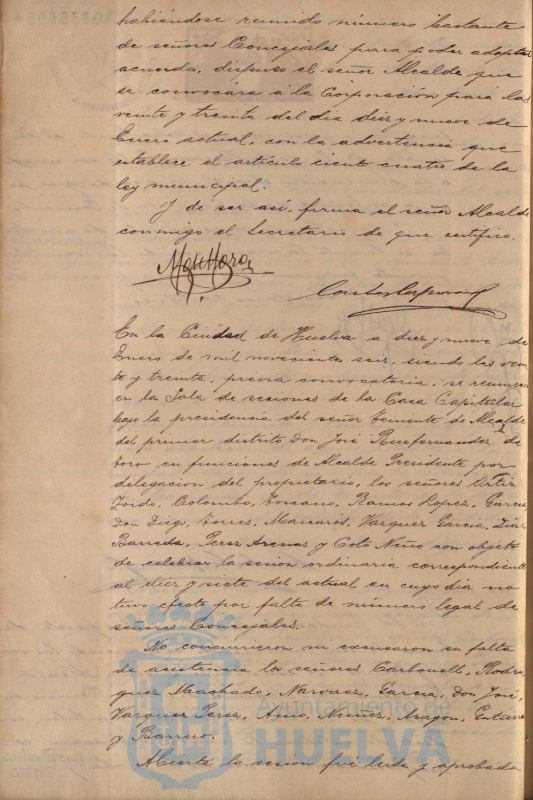 habiéndose reunido número bastante
de señores Concejales para poder adoptar
acuerdo, dispuso el señor Alcalde que
se convocára á la Corporación para las
veinte y treinta del dia diez y nueve de
Enero actual, con la advertencia que
establece el artículo ciento cuatro de la
ley municipal.
Y de ser así, firma el señor Alcalde
conmigo el Secretario de que certifico.
En la Ciudad de Huelva a diez y nueve de
Enero de mil novecientos seis, siendo las vein
te y treinta, previa convocatoria, se reunieron
en la Sala de sesiones de la Casa Capitular
bajo la presidencia del señor Teniente de Alcalde
del primer distrito Don José Ruifernandez de
Toro en funciones de Alcalde Presidente por
delegacion del propietario, los señores
Toride, Colombo, Toscano, Ramos Lopez, Garcia
Don Diego, Torres, Mascarós, Vazquez Garcia, Diaz
Barreda, Perez Arenas y Coto Niño con objeto
de celebrar la sesión ordinaria correspondiente
al diez y siete del actual en cuyo dia no
tuvo efecto por falta de número legal de
señores Concejales.
No concurrieron ni excusaron su falta
de asistencia los señores Carbonell, Rodri
guez Machado, Narvaez, Garcia, Don José,
Vazquez Perez, Nuñez, Aragon, Gutierrez
y Barrero.
Abierta la sesion fué leida y aprobada
Ayuntamiento de
HUELVA